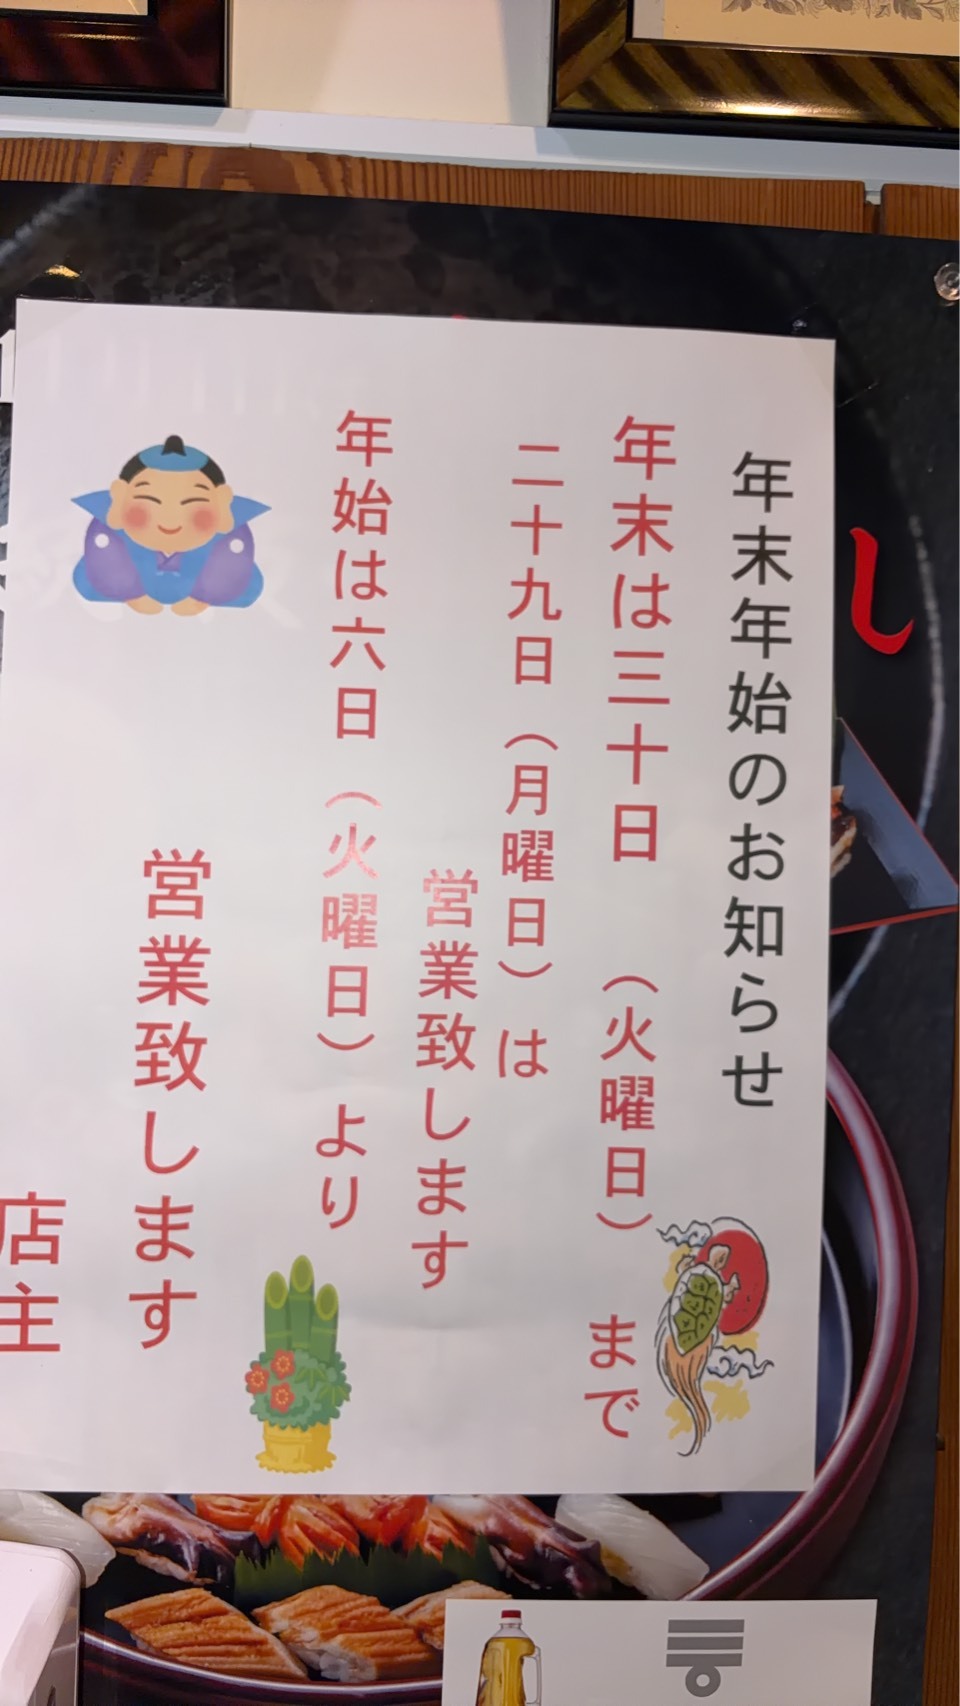 し
年末年始のお知らせ
年末は三十日（火曜日）まで
二十九日（月曜日）は
営業致します
年始は六日（火曜日）より
営業致します
店主